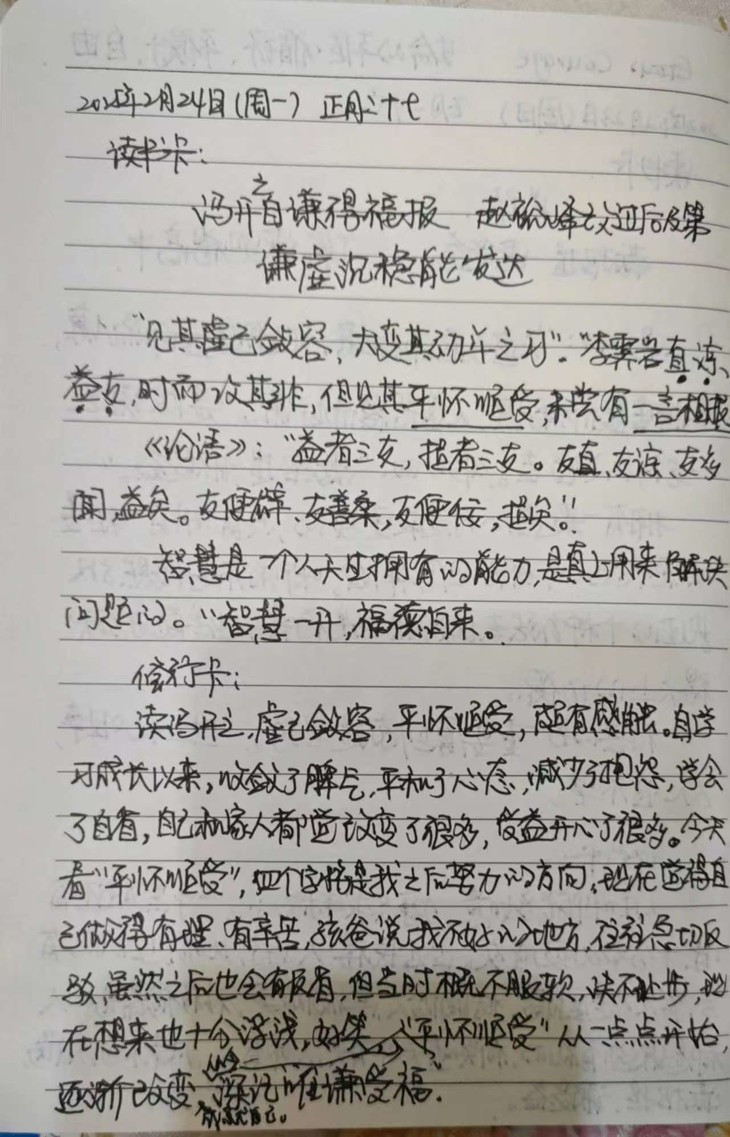 2025年2月24日(周一) 正月二十七
读书卡:
冯开之自谦得福报 赵裕峰改过后及第
谦虚沉稳能发达
“见其虚己敛容,大变其幼年之习”. “李霁岩直谅
益友,时面攻其非,但见其平怀顺受,未尝有一言相报
《论语》:“益者三友,损者三友。友直、友谅、友多
闻,益矣。友便辟、友善柔,友便佞,损矣。”
智慧是一个人天生拥有的能力,是真正用来解决
问题的。“智慧一开,福德自来。
修行卡:
读冯开之,虚己敛容,平怀顺受,颇有感触。自学
习成长以来,收敛了脾气,平和了心态,减少了抱怨,学会
了自省,自己和家人都觉改变了很多,受益开心了很多。今天
看“平怀顺受”,四个字将是我之后努力的方向,现在觉得自
己做得有理、有辛苦,孩爸说我不好的地方,往往急切反
驳,虽然之后也会有反省,但当时概不服软,决不让步,现
在想来也十分浮浅,好笑。“平怀顺受”从一点点开始,
逐渐改变,深记唯谦受福.
成就自己。